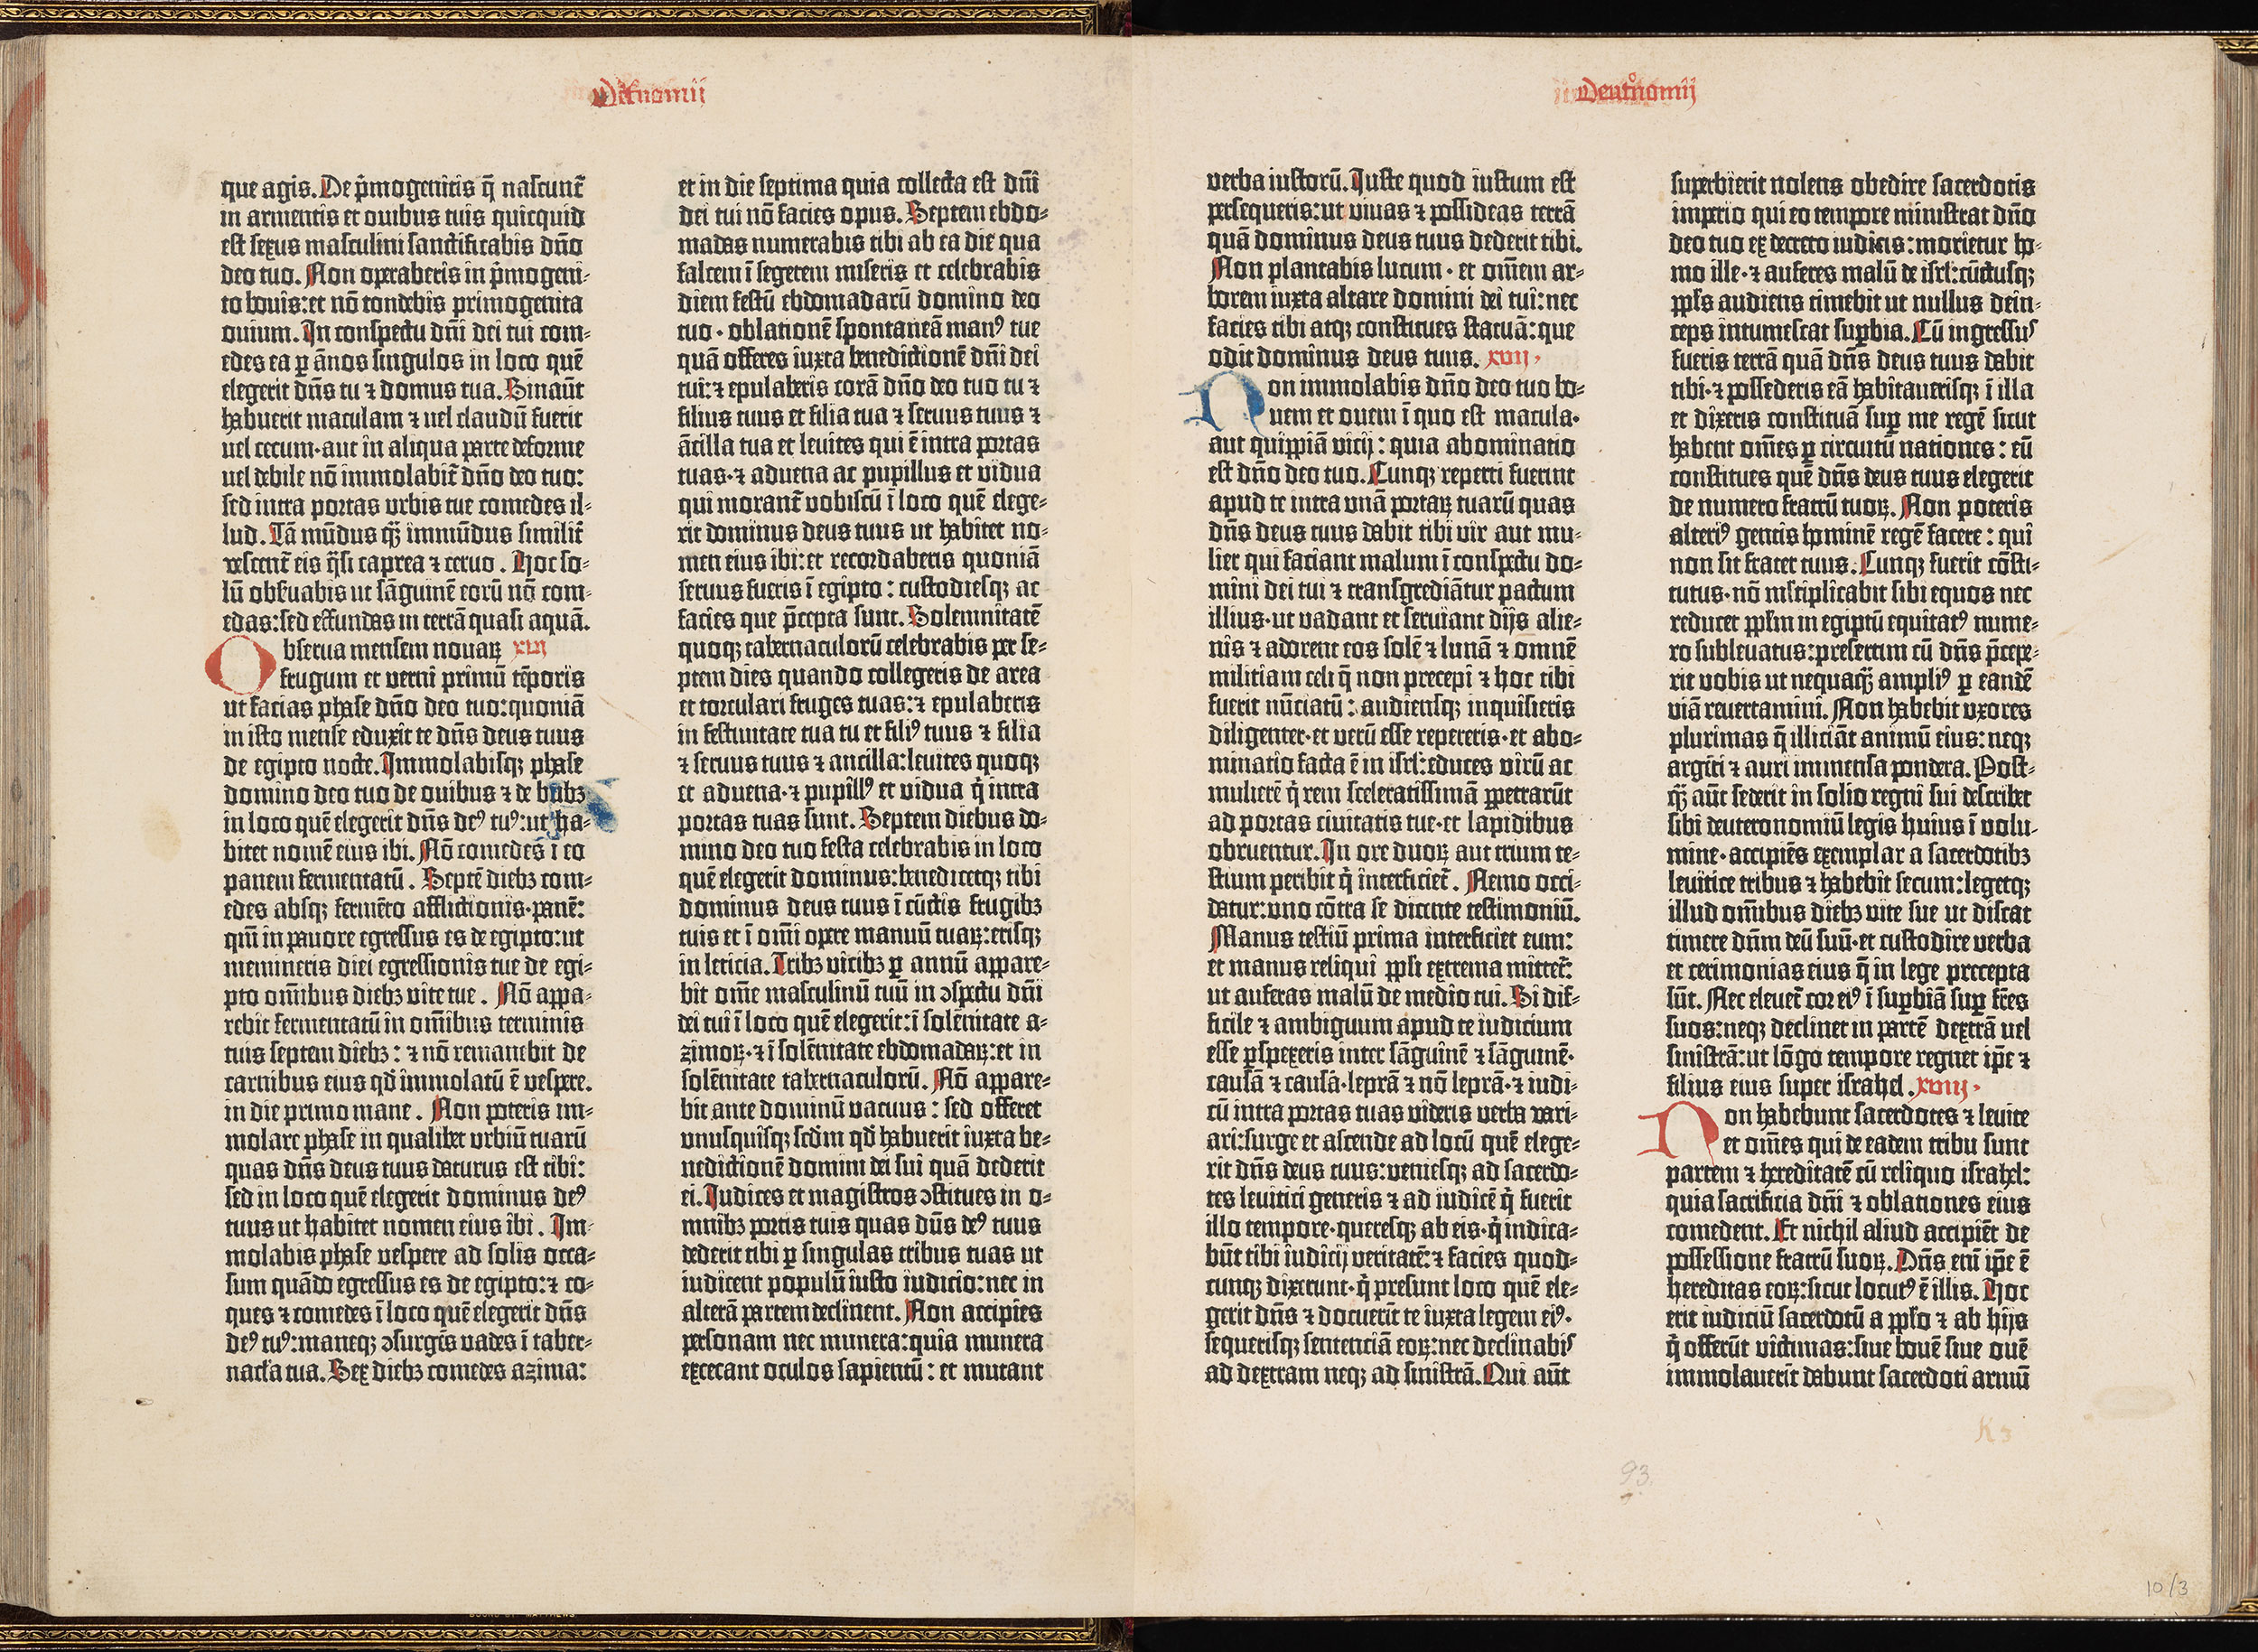 Deut̊nomij
que agis. De p̄mogenitis q̄ nascunt̄
in armentis et ouibus tuis quicquid
est sexus masculini sanctificabis dn̄o
deo tuo. Non operaberis in p̄mogeni-
to bouis: et nō tondebis primogenita
ouium. In conspectu dn̄i dei tui com-
edes ea ꝑ ānos singulos in loco quē
elegerit dn̄s tu ⁊ domus tua. Sinaūt
habuerit maculam ⁊ uel claudū fuerit
uel cecum · aut in aliqua parte deforme
uel debile nō immolabit̄ dn̄o deo tuo:
sed intra portas vrbis tue comedes il-
lud. Tā mūdus qȝ̄ immūdus similit̄
vescent̄ eis q̄si caprea ⁊ ceruo. Hoc so-
lū obẜuabis ut sāguinē eorū nō com-
edas: sed effundas in terrā quasi aquā.
Obserua mensem nouaꝝ xvi
frugum et verni primū tēporis
ut facias phase dn̄o deo tuo: quoniā
in isto mense eduxit te dn̄s deus tuus
de egipto nocte. Immolabisqȝ phase
domino deo tuo de ouibus ⁊ de bubȝ
in loco quē elegerit dn̄s deꝰ tuꝰ: ut ha-
bitet nomē eius ibi. Nō comedes ī eo
panem fermentatū. Septē diebȝ com-
edes absqȝ fermēto afflictionis · panē:
qm̄ in pauore egressus es de egipto: ut
memineris diei egressionis tue de egi-
pto om̄ibus diebȝ vite tue. Nō appa-
rebit fermentatū in om̄ibus terminis
tuis septem diebȝ: ⁊ nō remanebit de
carnibus eius qd̓ immolatū ē vespere.
in die primo mane. Non poteris im-
molare phase in qualibet vrbiū tuarū
quas dn̄s deus tuus daturus est tibi:
sed in loco quē elegerit dominus deꝰ
tuus ut habitet nomen eius ibi. Im-
molabis phase vespere ad solis occa-
sum quādo egressus es de egipto: ⁊ co-
ques ⁊ comedes ī loco quē elegerit dn̄s
deꝰ tuꝰ: maneqȝ ↄsurgēs vades ī taber-
nacl̓a tua. Sex diebȝ comedes azima:
et in die septima quia collecta est dn̄i
dei tui nō facies opus. Septem ebdo-
madas numerabis tibi ab ea die qua
falcem ī segetem miseris et celebrabis
diem festū ebdomadarū domino deo
tuo · oblationē spontaneā manꝰ tue
quā offeres iuxta benedictionē dn̄i dei
tui: ⁊ epulaberis corā dn̄o deo tuo tu ⁊
filius tuus et filia tua ⁊ seruus tuus ⁊
ācilla tua et leuites qui ē intra portas
tuas · ⁊ aduena ac pupillus et vidua
qui morant̄ vobiscū ī loco quē elege-
rit dominus deus tuus ut habitet no-
men eius ibi: et recordaberis quoniā
seruus fueris ī egipto: custodiesqȝ ac
facies que p̄cepta sunt. Solemnitatē
quoqȝ tabernaculorū celebrabis per se-
ptem dies quando collegeris de area
et torculari fruges tuas: ⁊ epulaberis
in festiuitate tua tu et filiꝰ tuus ⁊ filia
⁊ seruus tuus ⁊ ancilla: leuites quoqȝ
et aduena · ⁊ pupillꝰ et vidua q̇ intra
portas tuas sunt. Septem diebus do-
mino deo tuo festa celebrabis in loco
quē elegerit dominus: benedicetqȝ tibi
dominus deus tuus ī cūctis frugibȝ
tuis et ī om̄i opere manuū tuaꝝ: erisqȝ
in leticia. Tribȝ vicibȝ ꝑ annū appare-
bit om̄e masculinū tuū in ↄspectu dn̄i
dei tui ī loco quē elegerit: ī solēnitate a-
zimoꝝ · ⁊ ī solēnitate ebdomadaꝝ: et in
solēnitate tabernaculorū. Nō appare-
bit ante dominū vacuus: sed offeret
vnusquisqȝ scd̄m qd̓ habuerit iuxta be-
nedictionē domini dei sui quā dederit
ei. Iudices et magistros ↄstitues in o-
mnibȝ portis tuis quas dn̄s deꝰ tuus
dederit tibi ꝑ singulas tribus tuas ut
iudicent populū iusto iudicio: nec in
alterā partem declinent. Non accipies
personam nec munera: quia munera
excecant oculos sapientū: et mutant
Deut̊nomij
verba iustorū. Iuste quod iustum est
persequeris: ut viuas ⁊ possideas terrā
quā dominus deus tuus dederit tibi.
Non plantabis lucum · et om̄em ar-
borem iuxta altare domini dei tui: nec
facies tibi atqȝ constitues statuā: que
odit dominus deus tuus. xvij ·
Non immolabis dn̄o deo tuo bo-
uem et ouem ī quo est macula ·
aut quippiā vicij: quia abominatio
est dn̄o deo tuo. Cunqȝ reperti fuerint
apud te intra vnā portaꝝ tuarū quas
dn̄s deus tuus dabit tibi vir aut mu-
lier qui faciant malum ī conspectu do-
mini dei tui ⁊ transgrediātur pactum
illius · ut vadant et seruiant dijs alie-
nis ⁊ adorent eos solē ⁊ lunā ⁊ omnē
militiam celi q̄ non precepi ⁊ hoc tibi
fuerit nūciatū: audiensqȝ inquisieris
diligenter · et verū esse repereris · et abo-
minatio facta ē in isrl̓: educes virū ac
mulierē q̇ rem sceleratissimā ꝓpetrarūt
ad portas ciuitatis tue · et lapidibus
obruentur. In ore duoꝝ aut trium te-
stium peribit q̇ interficiet̄. Nemo occi-
datur: vno cōtra se dicente testimoniū.
Manus testiū prima interficiet eum:
et manus reliqui ppl̓i extrema mittet̄:
ut auferas malū de medio tui. Si dif-
ficile ⁊ ambiguum apud te iudicium
esse ꝑspexeris inter sāguinē ⁊ sāguinē ·
causā ⁊ causā · leprā ⁊ nō leprā · ⁊ iudi-
cū intra portas tuas videris verba vari-
ari: surge et ascende ad locū quē elege-
rit dn̄s deus tuus: veniesqȝ ad sacerdo-
tes leuitici generis ⁊ ad iudicē q̇ fuerit
illo tempore · queresqȝ ab eis · q̇ indica-
būt tibi iudicij veritatē: ⁊ facies quod-
cunqȝ dixerunt · q̇ presunt loco quē ele-
gerit dn̄s ⁊ docuerīt te iuxta legem eiꝰ.
sequerisqȝ sentenciā eoꝝ: nec declinabis
ad dextram neqȝ ad sinistrā. Qui aūt
superbierit nolens obedire sacerdotis
imperio qui eo tempore ministrat dn̄o
deo tuo ex decreto iudicis: morietur ho-
mo ille · ⁊ auferes malū de isrl̓: cūctusqȝ
ppl̓s audiens timebit ut nullus dein-
ceps intumescat suꝑbia. Cū ingressus
fueris terrā quā dn̄s deus tuus dabit
tibi · ⁊ possederis eā habitauerisqȝ ī illa
et dixeris constituā suꝑ me regē sicut
habent om̄es ꝑ circuitū nationes: eū
constitues quē dn̄s deus tuus elegerit
de numero fratrū tuoꝝ. Non poteris
alteriꝰ gentis hominē regē facere: qui
non sit frater tuus. Cunqȝ fuerit cōsti-
tutus · nō ml̓tiplicabit sibi equos nec
reducet ppl̓m in egiptū equitatꝰ nume-
ro subleuatus: presertim cū dn̄s p̄cepe-
rit vobis ut nequaqȝ̄ ampliꝰ ꝑ eandē
viā reuertamini. Non habebit vxores
plurimas q̄ illiciāt animū eius: neqȝ
argēti ⁊ auri immensa pondera. Post-
qȝ̄ aūt sederit in solio regni sui describet
sibi deuteronomiū legis huius ī volu-
mine · accipiēs exemplar a sacerdotibȝ
leuitice tribus ⁊ habebit secum: legetqȝ
illud om̄ibus diebȝ vite sue ut discat
timere dn̄m deū suū · et custodire verba
et cerimonias eius q̄ in lege precepta
sūt. Nec eleuet̄ cor eiꝰ ī suꝑbiā suꝑ fr̄es
suos: neqȝ declinet in partē dextrā uel
sinistrā: ut lōgo tempore regnet ip̄e ⁊
filius eius super israhel. xviij ·
Non habebunt sacerdotes ⁊ leuite
et om̄es qui de eadem tribu sunt
partem ⁊ hereditatē cū reliquo israhel:
quia sacrificia dn̄i ⁊ oblationes eius
comedent. Et nichil aliud accipiēt de
possessione fratrū suoꝝ. Dn̄s eni̅ ip̄e ē
hereditas eoꝝ: sicut locutꝰ ē illis. Hoc
erit iudiciū sacerdotū a ppl̓o ⁊ ab hijs
q̇ offerūt victimas: siue bouē siue ouē
immolauerīt dabunt sacerdoti armū
K 3
93.
10/3